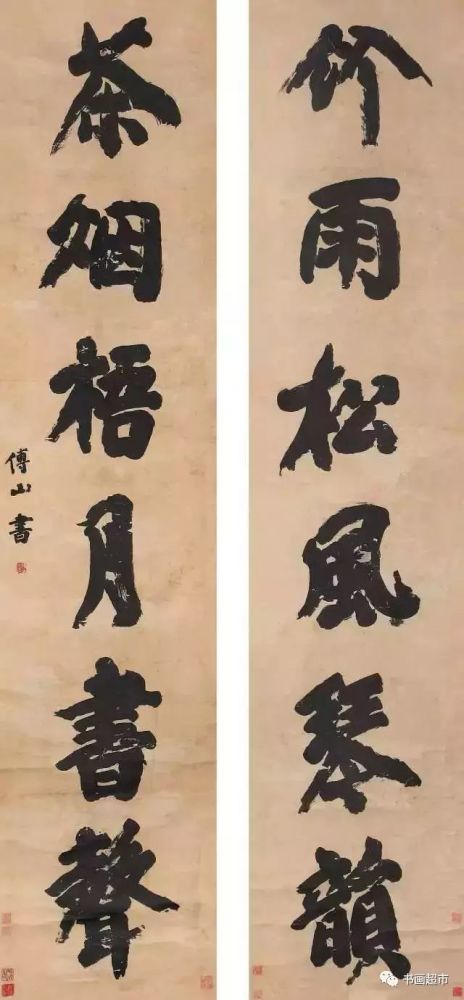 竹雨松風琴韻
茶烟梧月書聲
傅山書
书画超市